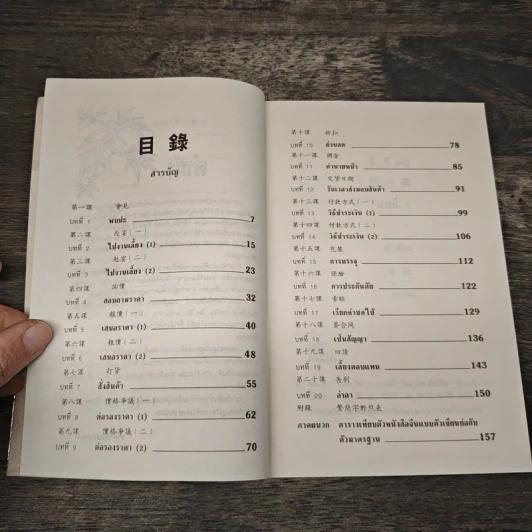 目錄
สารบัญ
第一課 會見
บทที่ 1 พบปะ 7
第二課 赴宴(一)
บทที่ 2 ไปงานเลี้ยง (1) 15
第三課 赴宴(二)
บทที่ 3 ไปงานเลี้ยง (2) 23
第四課 詢價
บทที่ 4 สอบถามราคา 32
第五課 報價(一)
บทที่ 5 เสนอราคา (1) 40
第六課 報價(二)
บทที่ 6 เสนอราคา (2) 48
第七課 訂貨
บทที่ 7 สั่งสินค้า 55
第八課 價格爭議(一)
บทที่ 8 ต่อรองราคา (1) 62
第九課 價格爭議(二)
บทที่ 9 ต่อรองราคา (2) 70
第十課 折扣
บทที่ 10 ส่วนลด 78
第十一課 佣金
บทที่ 11 ค่านายหน้า 85
第十二課 交貨日期
บทที่ 12 วันเวลาส่งมอบสินค้า 91
第十三課 付款方式(一)
บทที่ 13 วิธีชำระเงิน (1) 99
第十四課 付款方式(二)
บทที่ 14 วิธีชำระเงิน (2) 106
第十五課 包裝
บทที่ 15 การบรรจุ 112
第十六課 保險
บทที่ 16 การประกันภัย 122
第十七課 索賠
บทที่ 17 เรียกค่าชดใช้ 129
第十八課 簽合同
บทที่ 18 เซ็นสัญญา 136
第十九課 回請
บทที่ 19 เลี้ยงตอบแทน 143
第二十課 告別
บทที่ 20 อำลา 150
附錄 繁簡字對照表
ภาคผนวก ตารางเทียบตัวหนังสือจีนแบบตัวเขียนย่อกับ
ตัวมาตรฐาน 157